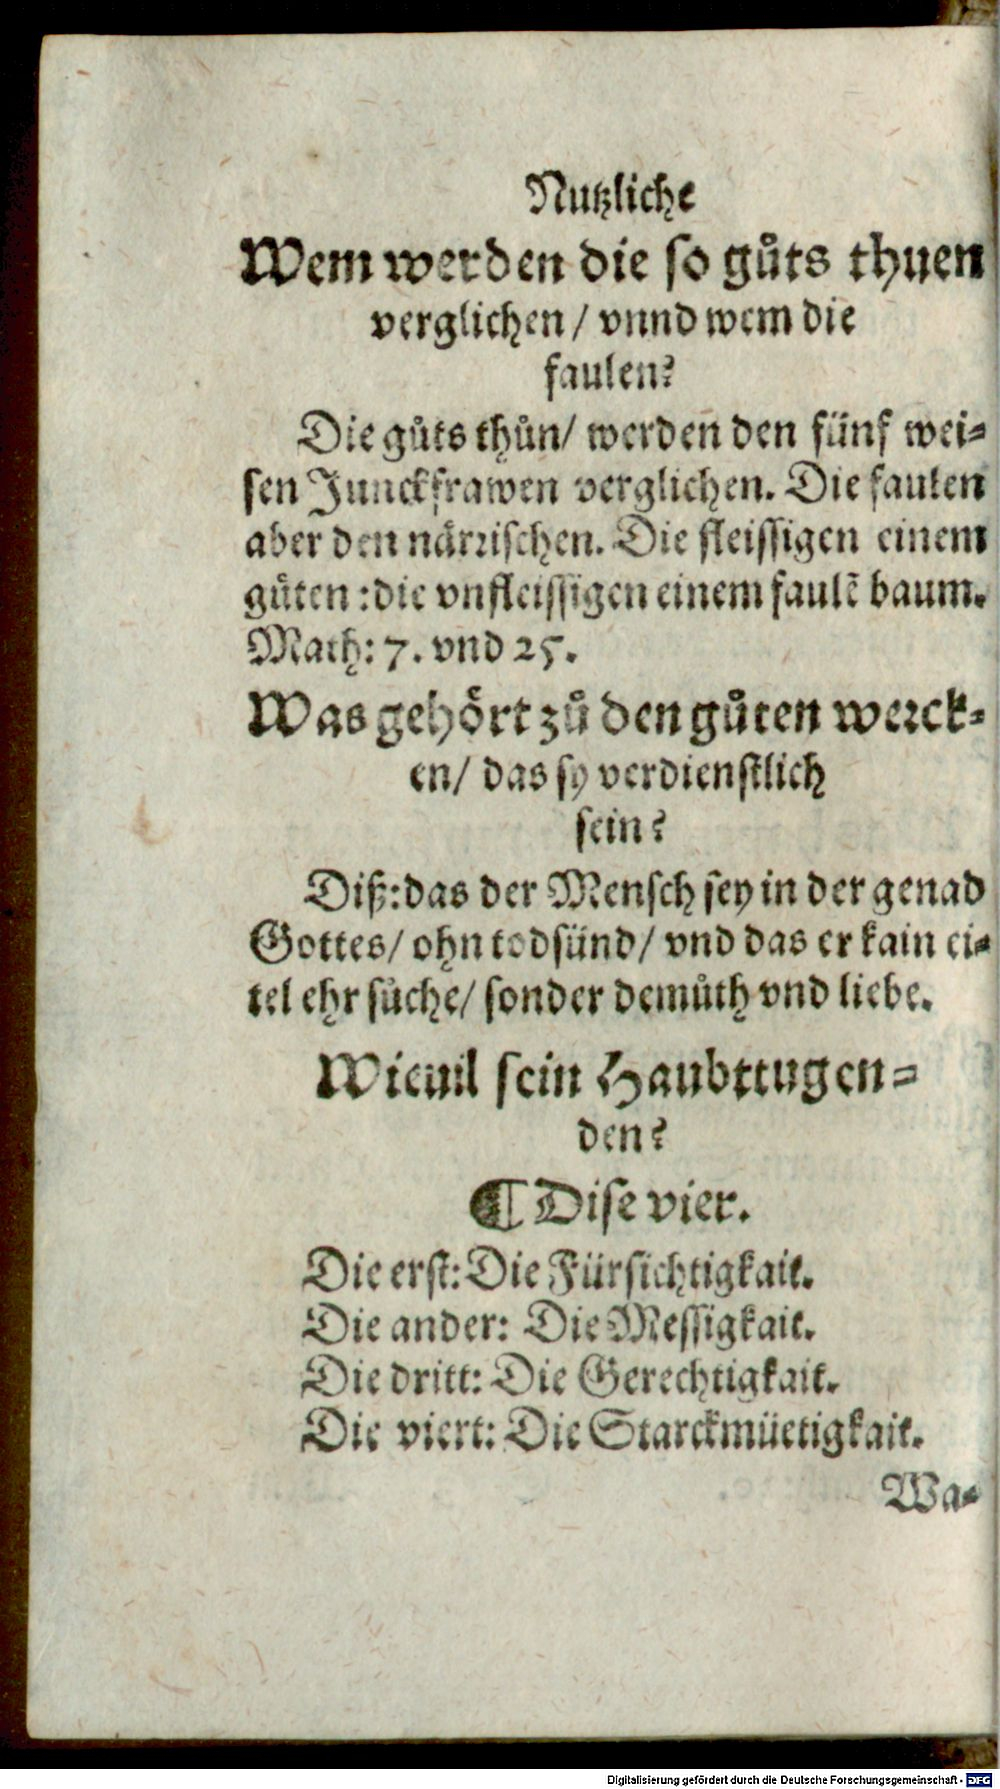 Nutzliche
Wem werden die so gůts thuen
verglichen / vnnd wem die
faulen?
Die gůts thůn / werden den fünf wei-
sen Junckfrawen verglichen. Die faulen
aber den närrischen. Die fleissigen einem
gůten : die vnfleissigen einem faulē baum.
Math: 7. vnd 25.
Was gehört zů den gůten werck-
en / das sy verdienstlich
sein?
Diß: das der Mensch sey in der genad
Gottes / ohn todsünd / vnd das er kain ei-
tel ehr sůche / sonder demůth vnd liebe.
Wieuil sein Haubttugen-
den?
¶ Dise vier.
Die erst: Die Fürsichtigkait.
Die ander: Die Messigkait.
Die dritt: Die Gerechtigkait.
Die viert: Die Starckmüetigkait.
Wa-
Digitalisierung gefördert durch die Deutsche Forschungsgemeinschaft - DFG